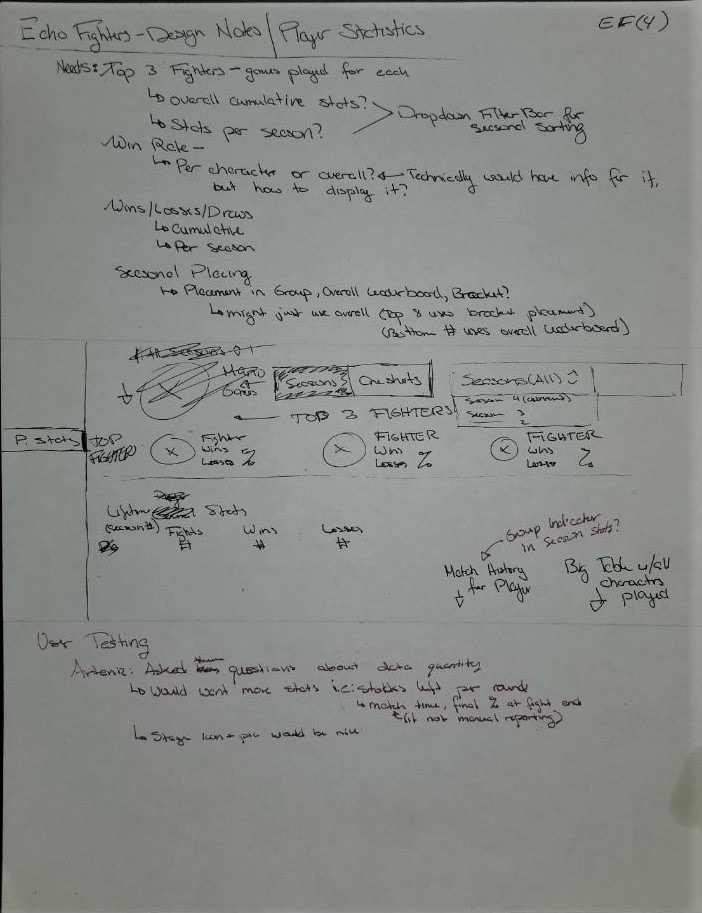 Echo Fighters - Design Notes / Player Statistics
EF(4)
Needs: Top 3 Fighters - games played for each
↳ overall cumulative stats?
↳ Stats per season?
Dropdown Filter Bar for
seasonal sorting
Win Rate -
↳ Per character or overall? ← Technically would have info for it,
but how to display it?
Wins/Losses/Draws
↳ Cumulative
↳ Per Season
Seasonal Placing
↳ Placement in Group, Overall Leaderboard, Bracket?
↳ might just use overall (Top 8 uses bracket placement)
(Bottom # uses overall leaderboard)
Mario
Games
Seasons
One shots
Seasons (All)
Season 4 (current)
Season 3
2
← TOP 3 FIGHTERS
P. Stats
TOP
FIGHTERS
Fighter
Wins
Losses %
FIGHTER
Wins
Losses %
FIGHTER
Wins
Losses %
Lifetime Stats
(season #)
Fights
#
Wins
#
Losses
#
Group Indicator
in Season Stats?
Match History
for Player
Big Table w/all
characters
played
User Testing
Asked questions about data quantity
↳ Would want more stats i.e: stocks left per round
↳ match time, final % at fight end
(if not manual reporting)
↳ Stage icon + pic would be nice